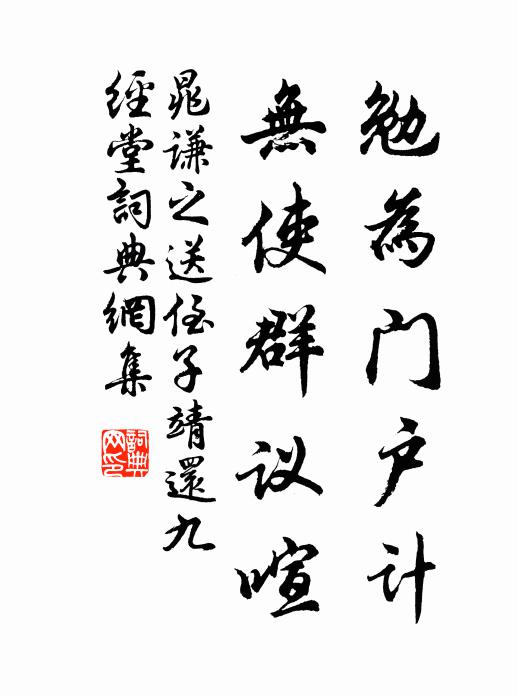 勉為门户计
無使群议喧
晁谦之送侄子靖還九
經堂詞典網集
詞典网印